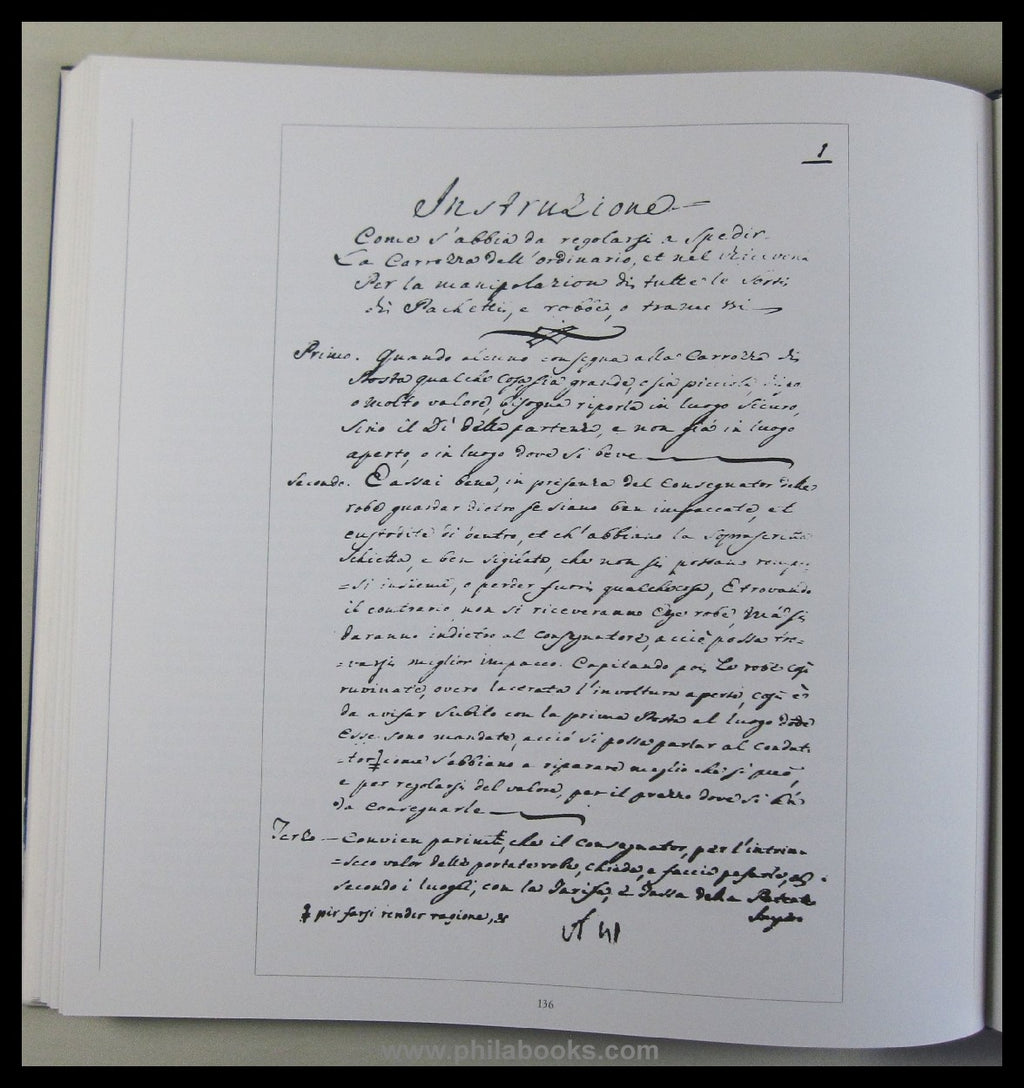 1
Instruzione
Come s'abbia da regolarsi a spedir
La Carrozza dell'ordinario, et nel riceverne
Per la manipolazion di tutte le Sorti
di Pachetti, e robbe, o trame
Primo. Quando alcuno consegna alla Carrozza di
Posta qualche cosa, sia grande, o sia picciola,
o molto valore, bisogna riporla in luogo sicuro,
sino il Di della partenza, e non già in luogo
aperto, o in luogo dove si beve
Secondo. È assai bene, in presenza del Consegnator delle
robe guardar dietro se siano ben impaccate, et
custodite di dentro, et ch'abbiano la Soprascritta
Schietta, e ben sigilate, che non si possano romper
=si insieme, o perder fuori qualchecosa, E trovando
il contrario non si riceveranno robe, mà si
daranno indietro al consegnatore, acciò possa tro=
=varsi miglior impacco. Capitando poi Le robe così
ruvinate, overo lacerata l'involtura aperse, così è
da avisar subito con la prima Posta al luogo dove
Esse sono mandate, acciò si possa parlar al Condut
=tor ‡ come s'abbiano a riparare meglio che si può,
e per regolarsi del valore, per il prezzo dove si hà
da consegnarle
Terzo – Convien pariment, che il consegnator, per l'intrin
=seco valor delle portate robe, chieda, e faccia pesarle,
secondo i luoghi, con la Tarifa, è Tassa della
‡ pir farsi render ragione, &
136
www.philabooks.com